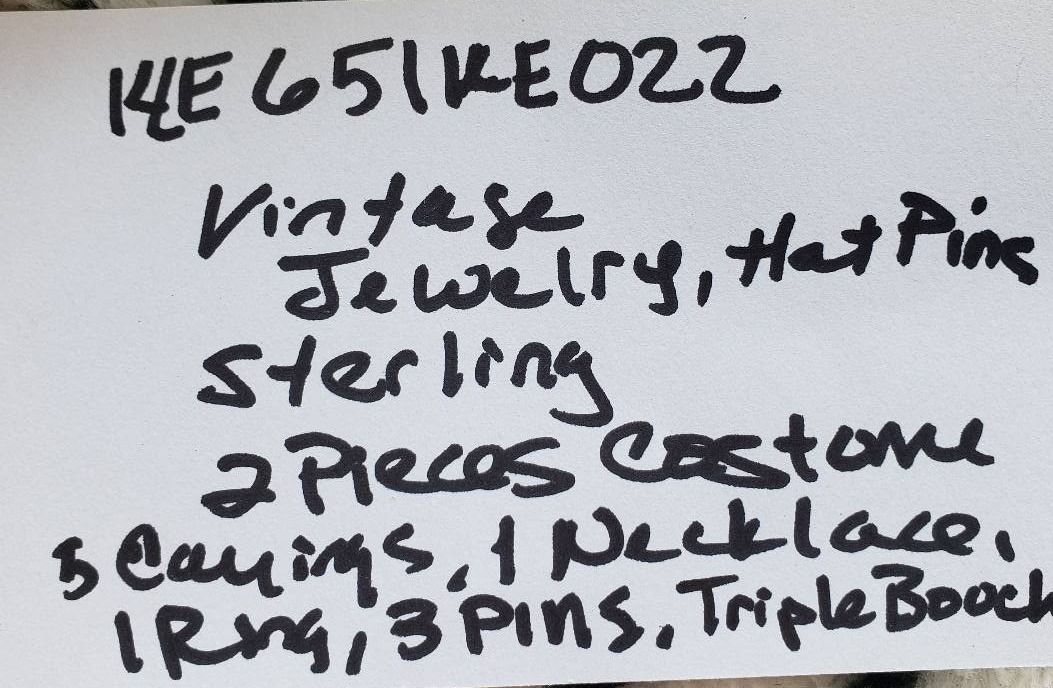 KE651KE022
Vintage
Jewelry, Hat Pins
Sterling
2 Pieces Costome
5 Earrings, 1 Necklace,
1 Ring, 3 Pins, Triple Booch